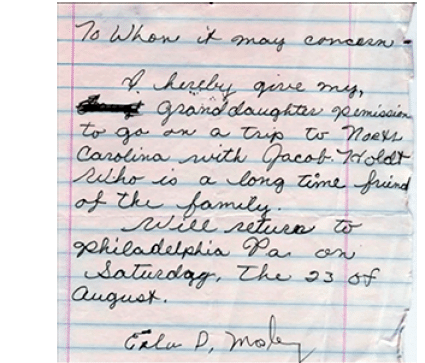 To Whom it may concern -
I hereby give my,
Granddaughter pemission
to go on a trip to North
Carolina with Jacob Holdt
Who is a long time friend
of the family.
Will return to
Philadelphia Pa. on
Saturday, The 23 of
August.
D, Mosley